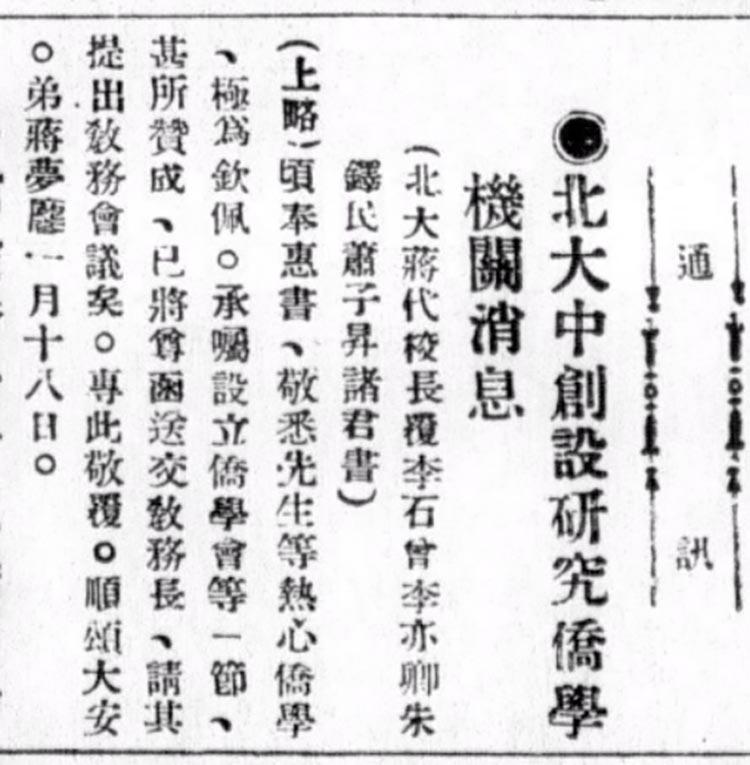 通訊
●北大中創設研究僑學
機關消息
(北大蔣代校長覆李石曾李亦卿朱
鐸民蕭子昇諸君書)
(上略)頃奉惠書、敬悉先生等熱心僑學
、極爲欽佩。承囑設立僑學會等一節、
甚所贊成、已將尊函送交敎務長、請其
提出敎務會議矣。專此敬覆。順頌大安
。弟蔣夢麐一月十八日。